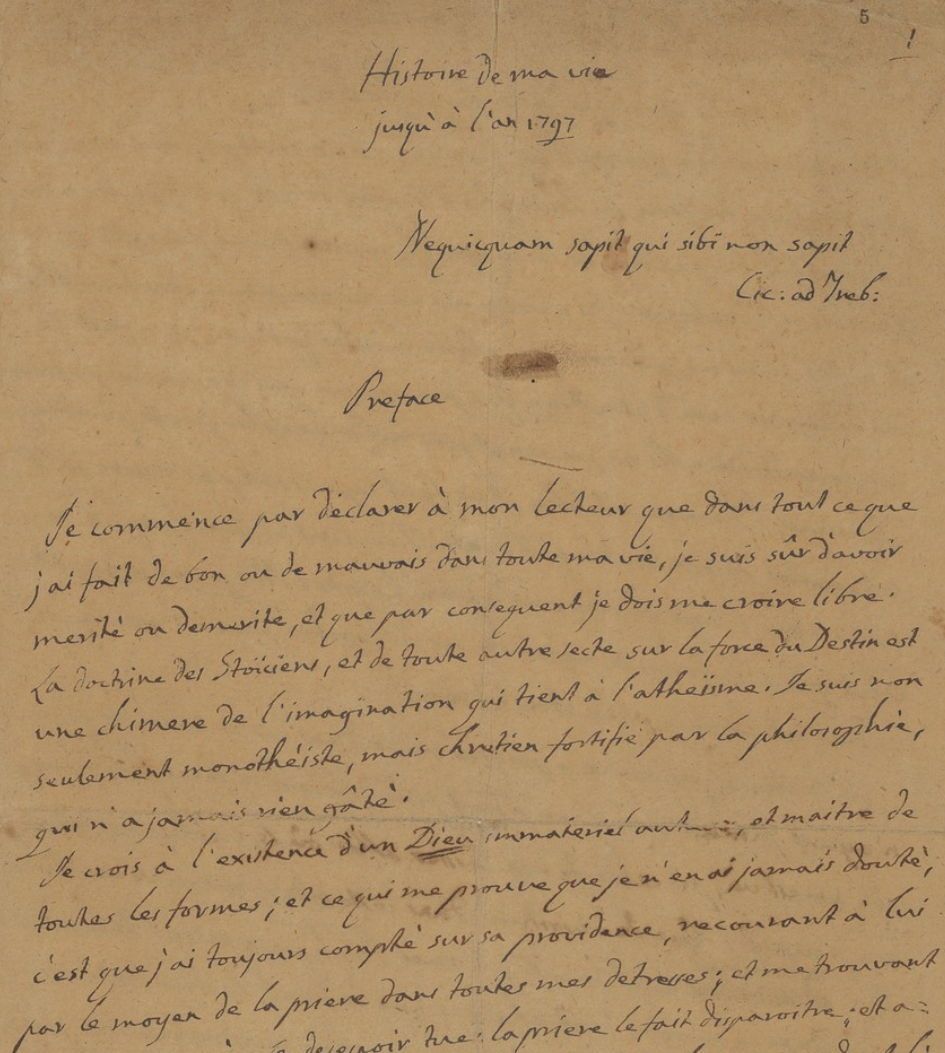 5
1
Histoire de ma vie
jusqu'à l'an 1797
Nequicquam sapit qui sibi non sapit
Cic: ad Treb:
Preface
Je commence par déclarer à mon lecteur que dans tout ce que
j'ai fait de bon ou de mauvais dans toute ma vie, je suis sûr d'avoir
merité ou demerite, et que par consequent je dois me croire libre.
La doctrine des Stoïciens, et de toute autre secte sur la force du Destin est
une chimere de l'imagination qui tient à l'atheïsme. Je suis non
seulement monothéiste, mais chretien fortifié par la philosophie,
qui n'a jamais rien gâté.
Je crois à l'existence d'un Dieu immateriel, et maitre de
toutes les formes; et ce qui me prouve que je n'en ai jamais douté,
c'est que j'ai toujours compté sur sa providence, recourant à lui
par le moyen de la priere dans toutes mes detresses; et me trouvant
desespoir tue: la priere le fait disparoitre; et a=